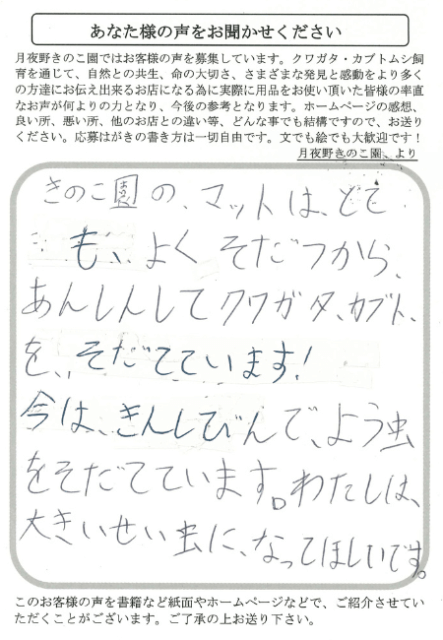 あなた様の声をお聞かせください
月夜野きのこ園ではお客様の声を募集しています。クワガタ・カブトムシ飼
育を通じて、自然との共生、命の大切さ、さまざまな発見と感動をより多く
の方達にお伝え出来るお店になる為に実際に用品をお使い頂いた皆様の率直
なお声が何よりの力となり、今後の参考となります。ホームページの感想、
良い所、悪い所、他のお店との違い等、どんな事でも結構ですので、お送り
ください。応募はがきの書き方は一切自由です。文でも絵でも大歓迎です！
月夜野きのこ園　より
きのこ園の、マットは、とて
も、よくそだつから、
あんしんしてクワガタ、カブト、
を、そだてています!
今は、きんしびんで、よう虫
をそだてています。わたしは、
大きいせい虫に、なってほしいです。
このお客様の声を書籍など紙面やホームページなどで、ご紹介させてい
ただくことがございます。ご了承の上お送り下さい。